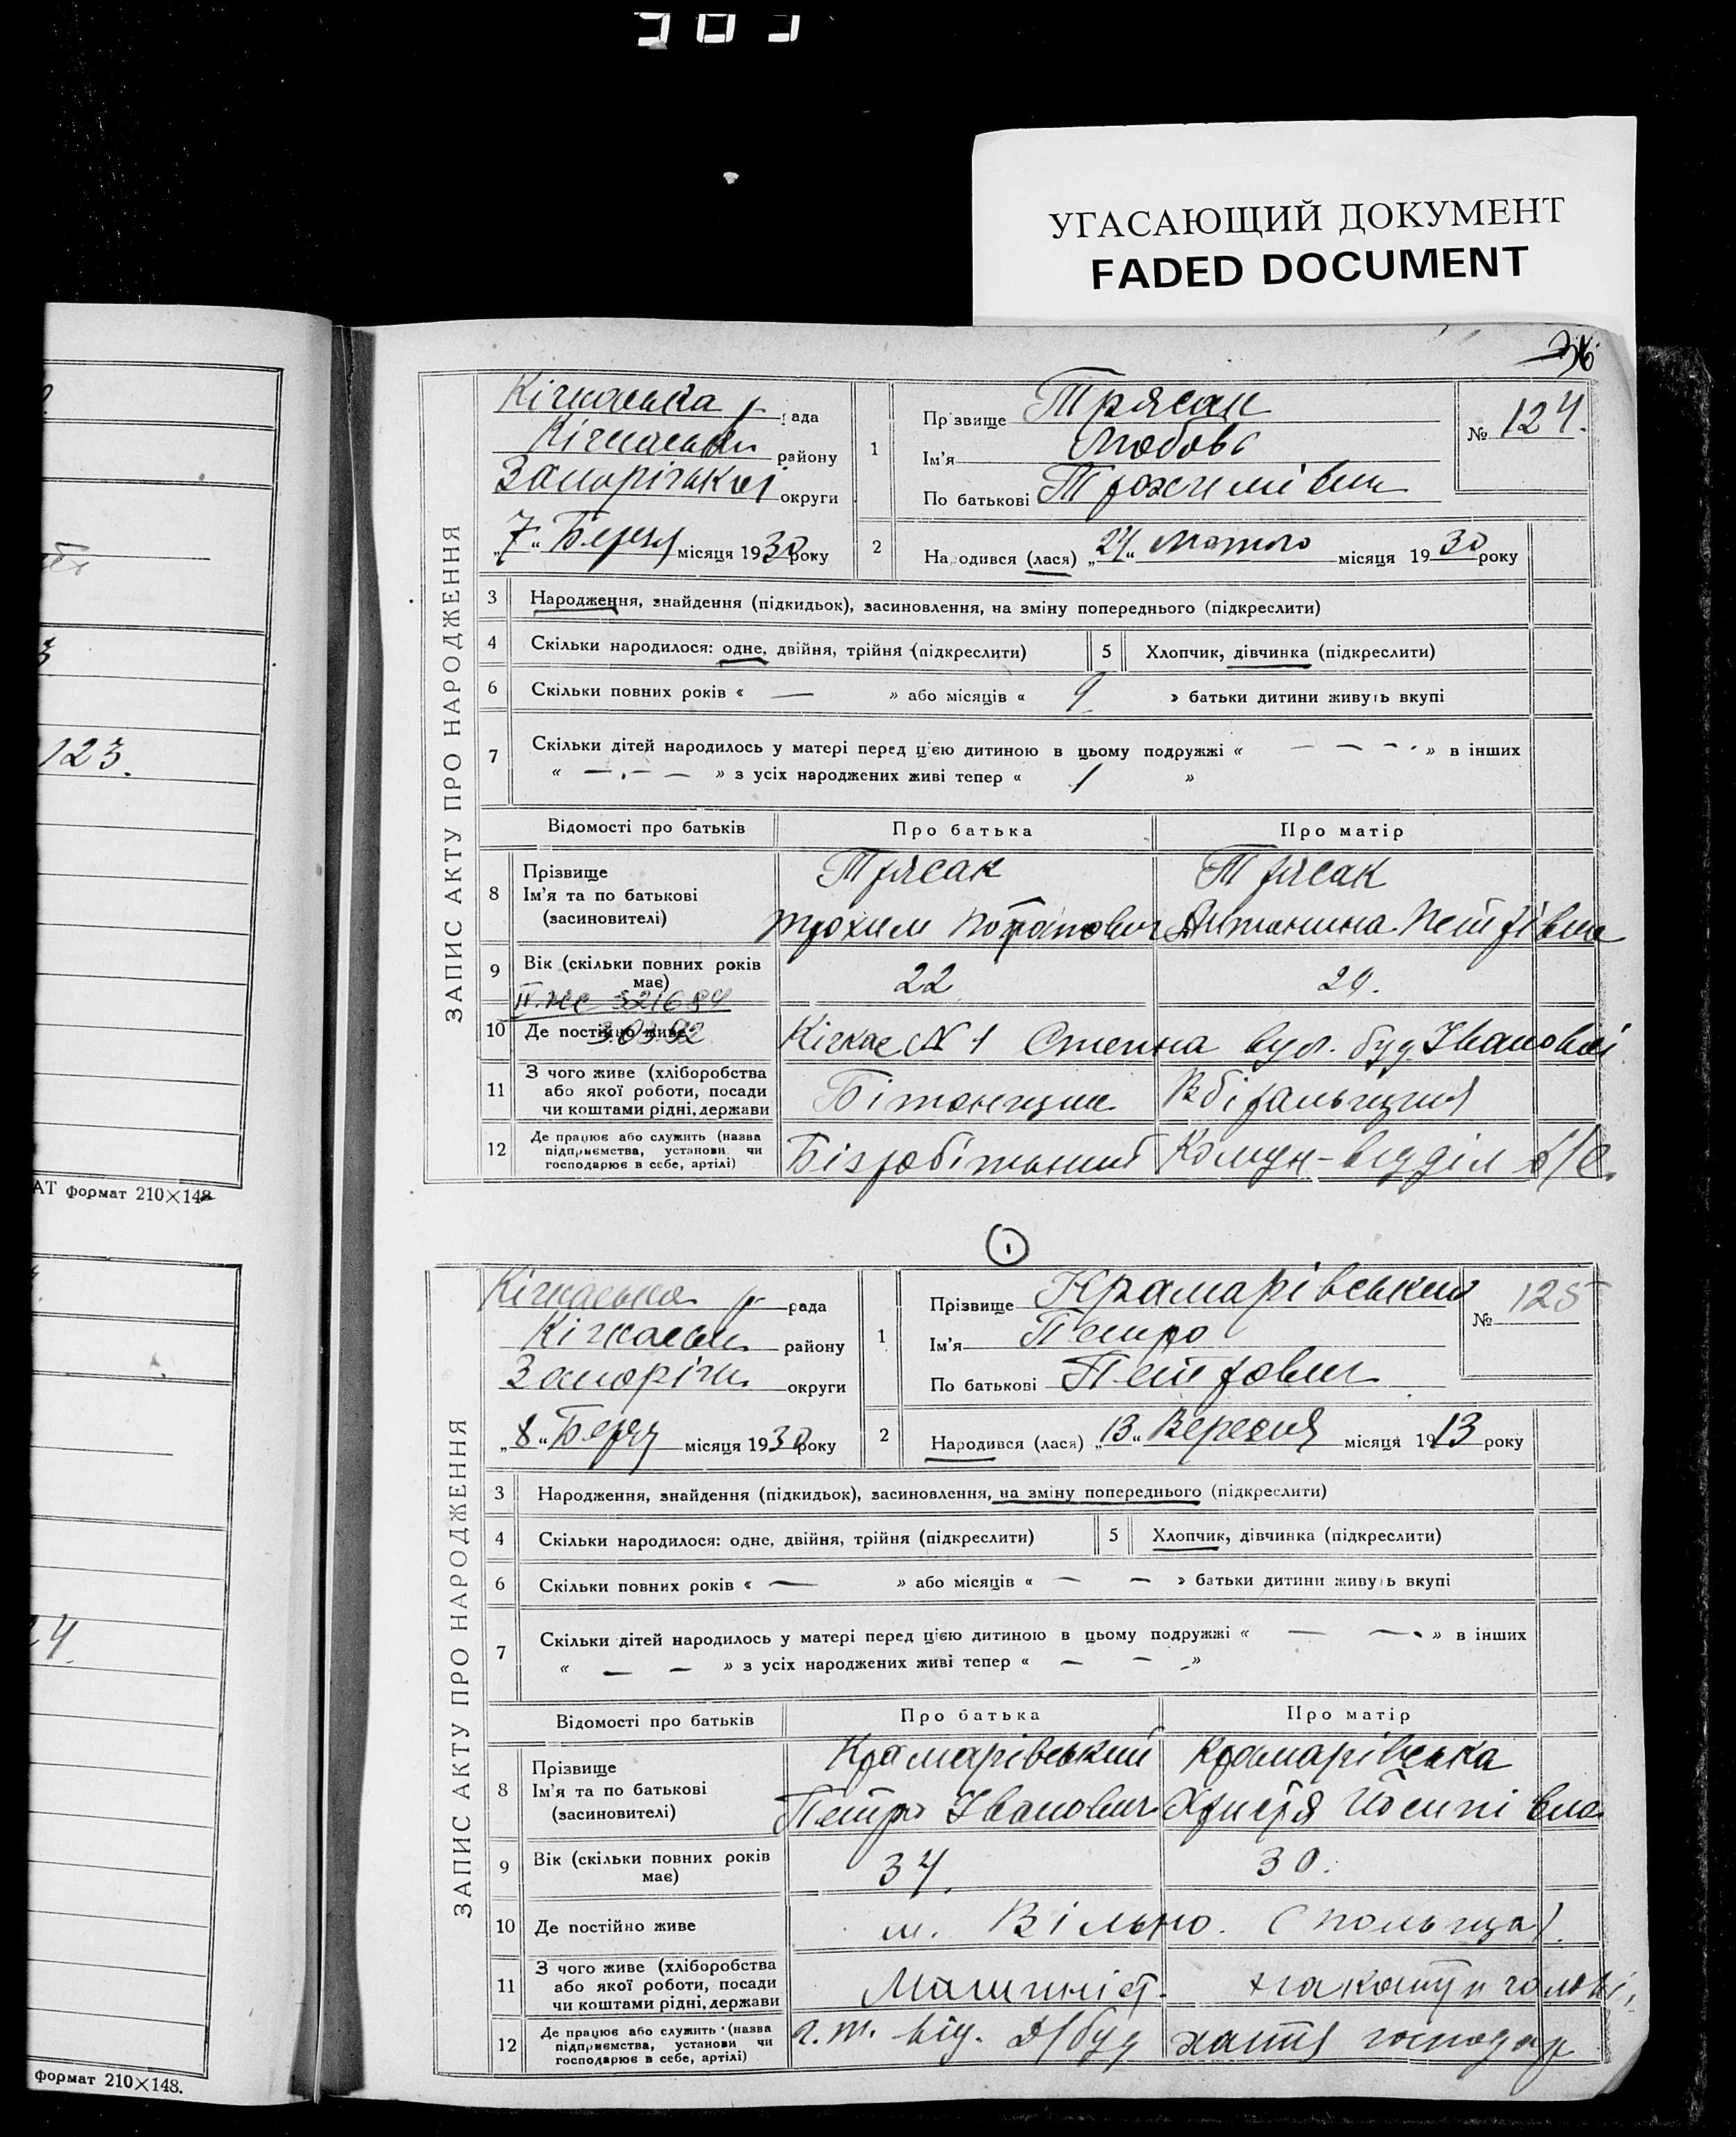 УГАСАЮЩИЙ ДОКУМЕНТ
FADED DOCUMENT
36
123.
АТ формат 210×148
формат 210×148.
ЗАПИС АКТУ ПРО НАРОДЖЕННЯ
Кічкаська р. рада
Кічкаськ району
Запорізької округи
„7“ Березня місяця 1930 року
1
Прізвище Трясак
Ім'я Любовь
По батькові Трохимівна
№ 124.
2
Народився (лася) „24“ Лютого місяця 1930 року
3 Народження, знайдення (підкидьок), засиновлення, на зміну попереднього (підкреслити)
4 Скільки народилося: одне, двійня, трійня (підкреслити)
5 Хлопчик, дівчинка (підкреслити)
6 Скільки повних років « — » або місяців « 9 » батьки дитини живуть вкупі
7 Скільки дітей народилось у матері перед цією дитиною в цьому подружжі « — — — » в інших
« — — — » з усіх народжених живі тепер « 1 »
Відомості про батьків Про батька Про матір
8 Прізвище
Ім'я та по батькові
(засиновителі)
Трясак Трясак
Трохим Потапович Антонина Петрівна
9 Вік (скільки повних років має) 22 24.
10 Де постійно живе Кічкас № 1 Степна вул. буд. Іванової
11 З чого живе (хліборобства
або якої роботи, посади
чи коштами рідні, держави
Бітонщик Вбіральщиця
12 Де працює або служить (назва
підприємства, установи чи
господарює в себе, артілі)
Безробітьний Комун-відділ
1
ЗАПИС АКТУ ПРО НАРОДЖЕННЯ
Кічкаська р. рада
Кічкаськ. району
Запоріжж. округи
„8“ Берез місяця 1930 року
1
Прізвище Крамарівський
Ім'я Петро
По батькові Петрович
№ 125
2
Народився (лася) „13“ Вересня місяця 1913 року
3 Народження, знайдення (підкидьок), засиновлення, на зміну попереднього (підкреслити)
4 Скільки народилося: одне, двійня, трійня (підкреслити)
5 Хлопчик, дівчинка (підкреслити)
6 Скільки повних років « — » або місяців « — — » батьки дитини живуть вкупі
7 Скільки дітей народилось у матері перед цією дитиною в цьому подружжі « — — » в інших
« — — » з усіх народжених живі тепер « — — — »
Відомості про батьків Про батька Про матір
8 Прізвище
Ім'я та по батькові
(засиновителі)
Крамарівський Крамарівська
Петро Іванович Христя Йосипівна
9 Вік (скільки повних років має) 34. 30.
10 Де постійно живе м. Вільно. (Польща).
11 З чого живе (хліборобства
або якої роботи, посади
чи коштами рідні, держави
Машиніст.
12 Де працює або служить (назва
підприємства, установи чи
господарює в себе, артілі)
хатня господар